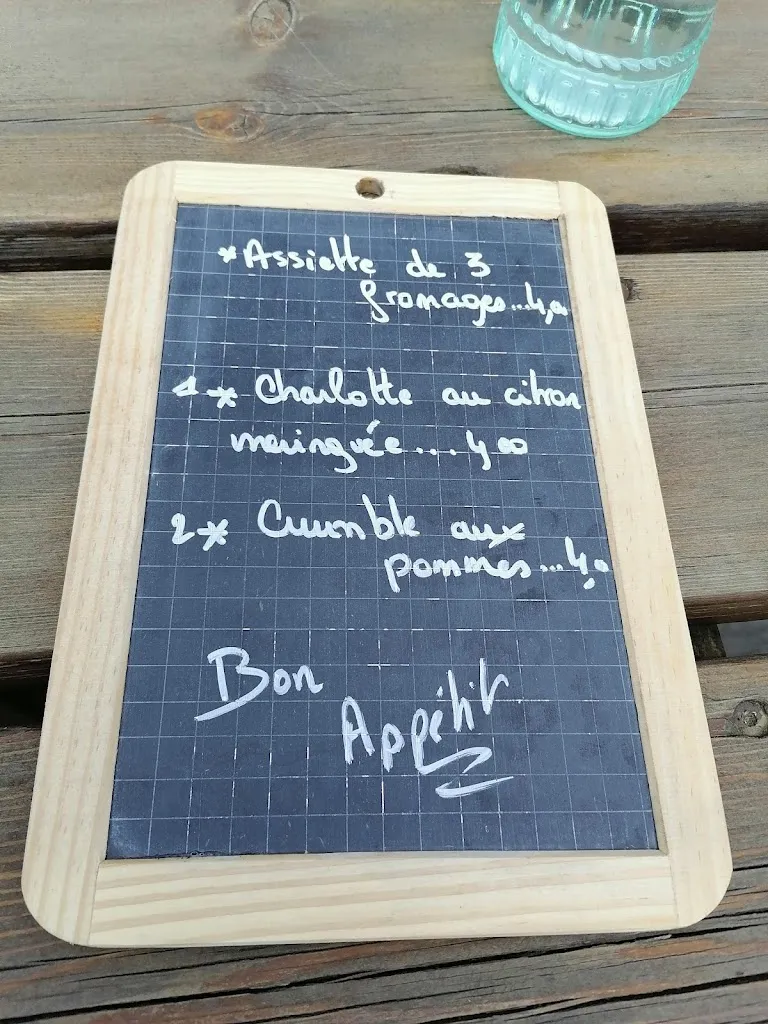 * Assiette de 3
fromages...4,00
1 * Charlotte au citron
meringuée....4,00
2 * Crumble aux
pommes...4,0
Bon
Appétit